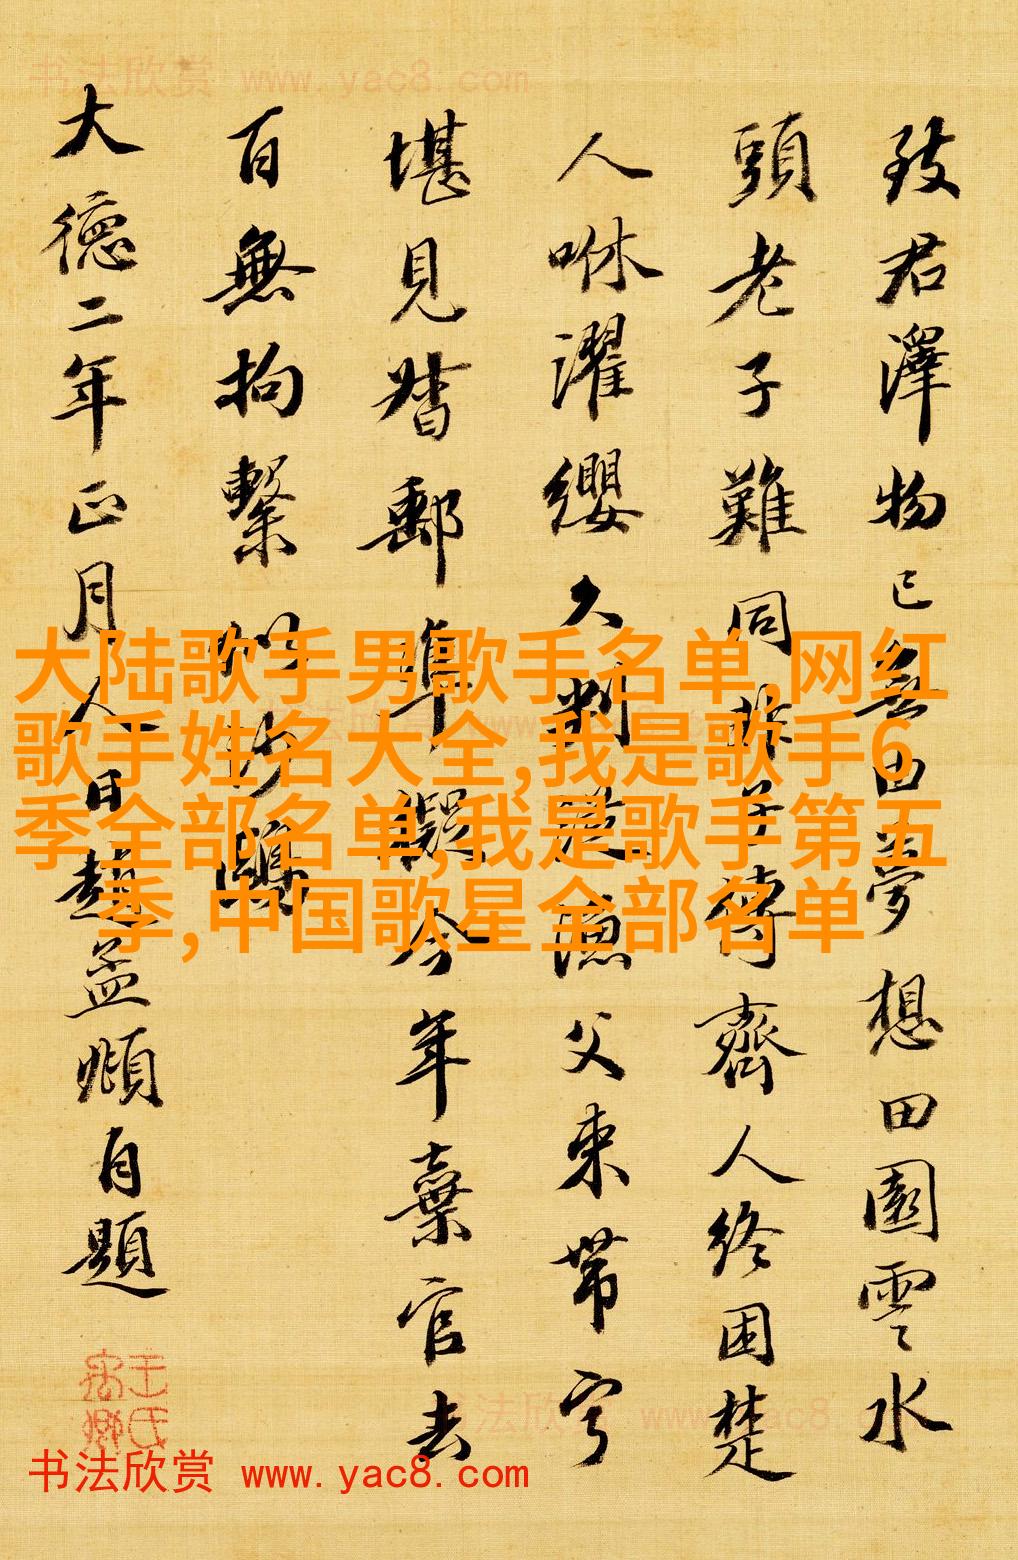 书法欣赏 www.yac8.com
致君澤物已無由夢想田園雲水
頭老子難同非子傳齊人終困楚
人咻濯纓久判從漁父束帶寧
堪見督郵準擬今年棄官去
百無拘繫似沙鷗
大德二年正月人日趙孟頫自題
大陆歌手男歌手名单,网红
歌手姓名大全,我是歌手6
季全部名单,我是歌手第五
季,中国歌星全部名单
书法欣赏 www.yac8.com
书法欣赏 www.yac8.com